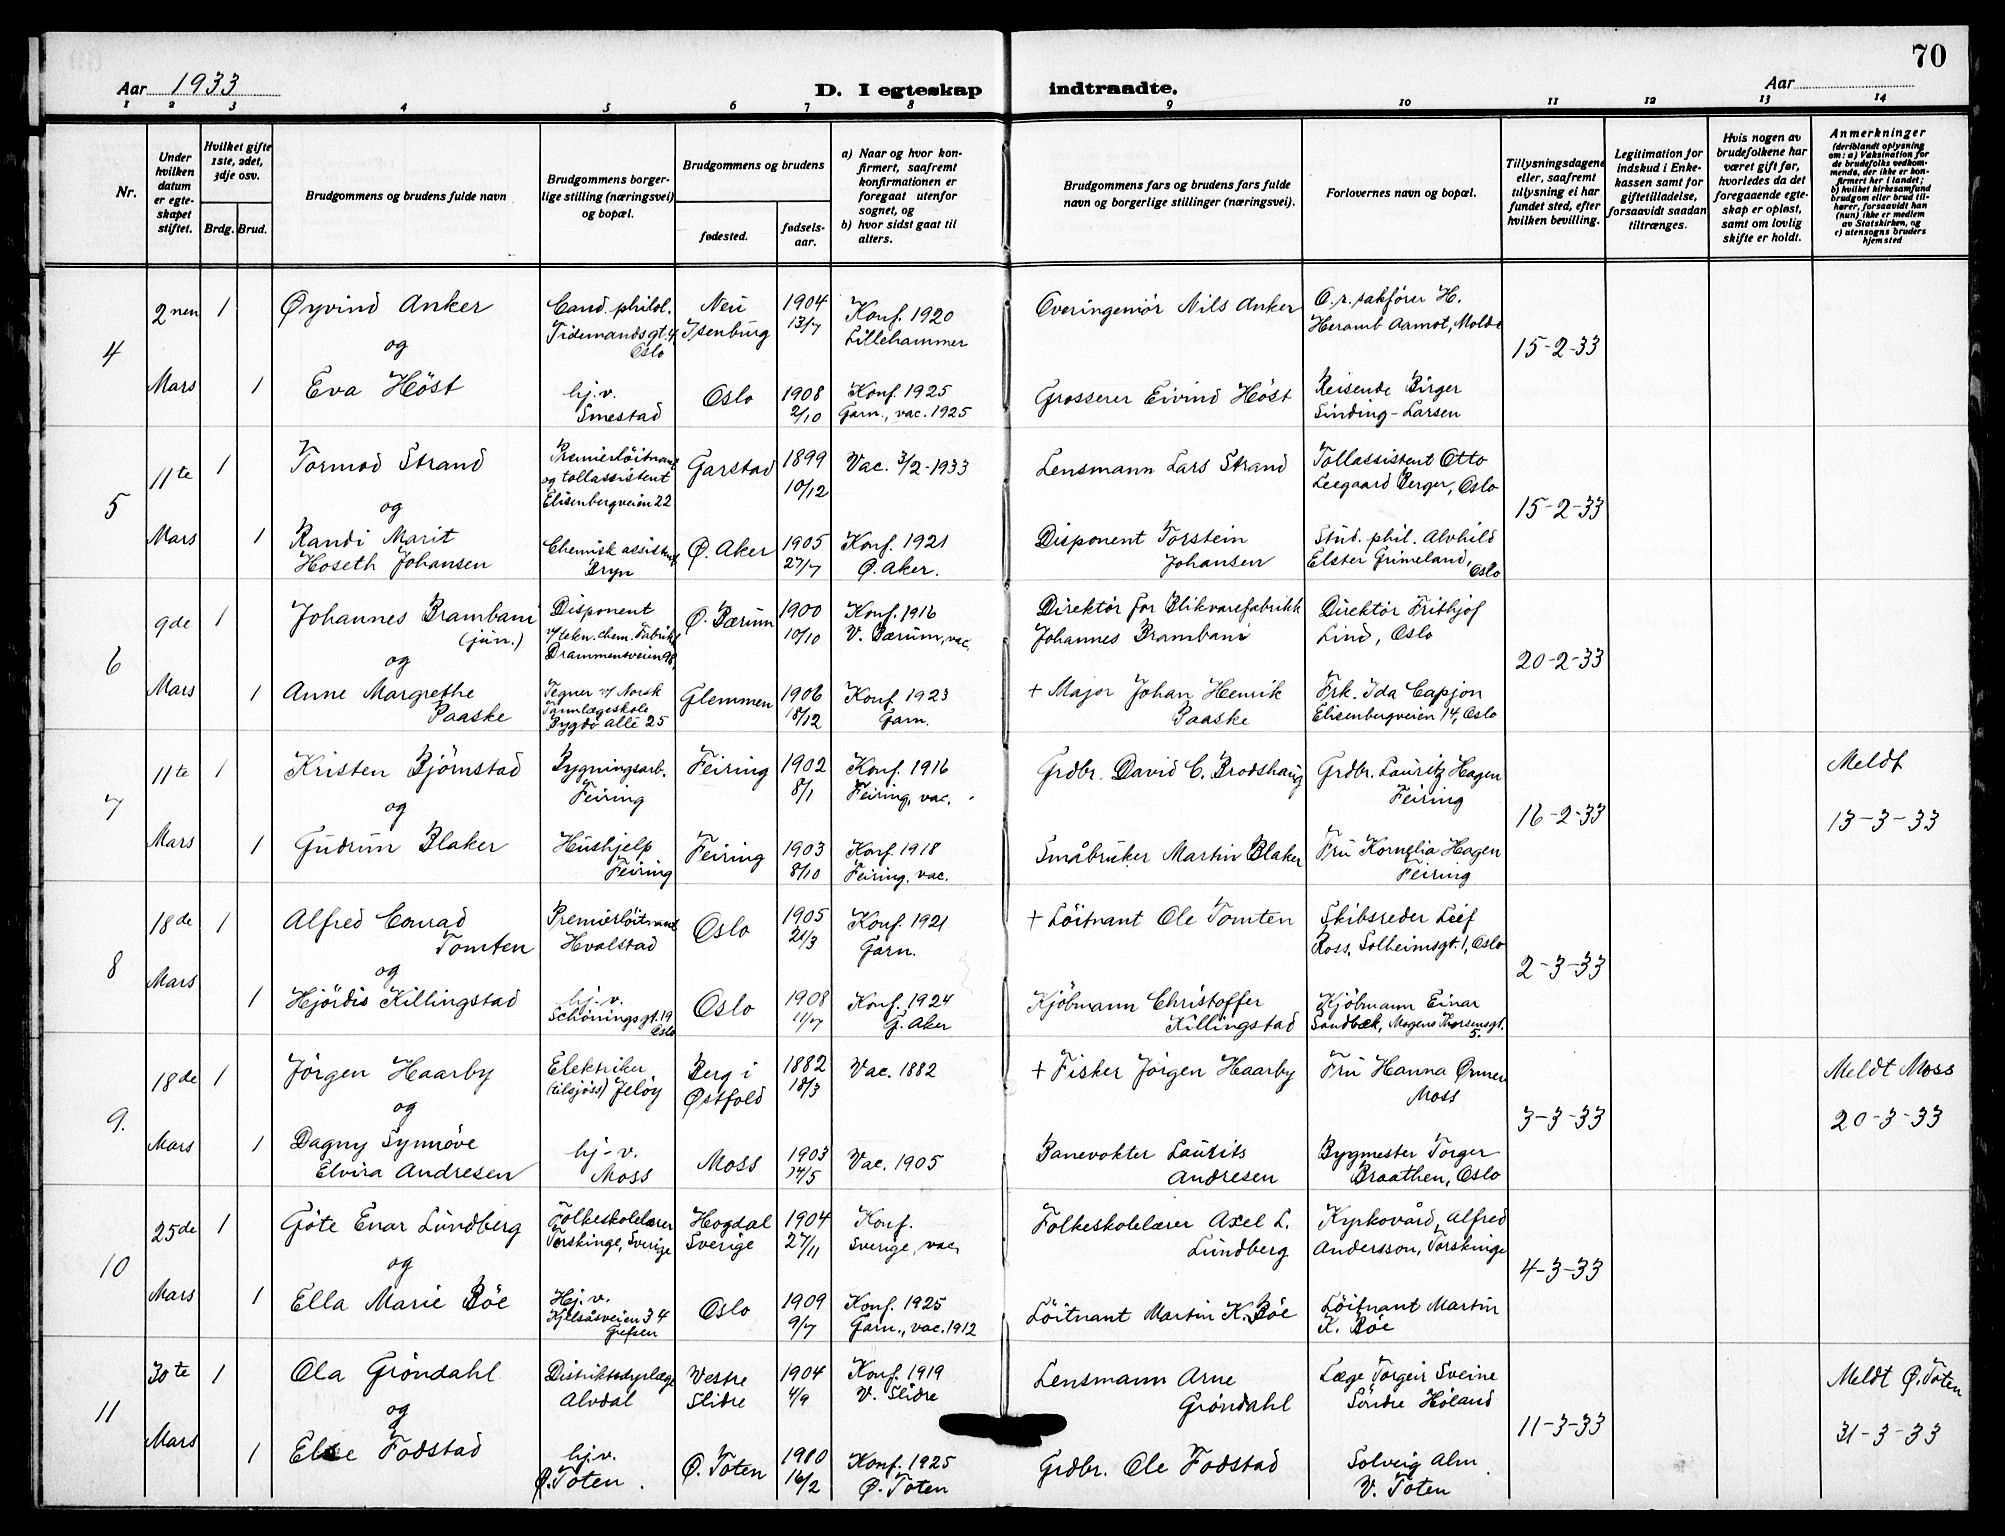 70
Aar 1933
D. I egteskap indtraadte.
Aar
1 2 3 4 5 6 7 8 9 10 11 12 13 14
Nr.
Under hvilken datum er egteskapet stiftet.
Hvilket gifte 1ste, 2det, 3dje osv.
Brdg. Brud.
Brudgommens og brudens fulde navn
Brudgommens borgerlige stilling (næringsvei) og bopæl.
Brudgommens og brudens
fødested.
fødselsaar.
a) Naar og hvor konfirmert, saafremt konfirmationen er foregaat utenfor sognet, og
b) hvor sidst gaat til alters.
Brudgommens fars og brudens fars fulde navn og borgerlige stillinger (næringsvei).
Forlovernes navn og bopæl.
Tillysningsdagene eller, saafremt tillysning ei har fundet sted, efter hvilken bevilling.
Legitimation for indskud i Enkekassen samt for giftetilladelse, forsaavidt saadan tiltrænges.
Hvis nogen av brudefolkene har været gift før, hvorledes da det foregaaende egteskap er opløst, samt om lovlig skifte er holdt.
Anmerkninger (deriblandt oplysning om: a) Vaksination for de brudefolks vedkommende, der ikke er konfirmert her i landet; b) hvilket kirkesamfund brudgom eller brud tilhører, forsaavidt han (hun) ikke er medlem av Statskirken, og c) utensogns bruders hjemsted
4
2nen Mars
1 Øyvind Anker
Cand. philol. Tidemandsgt. 4 Oslo
Neu Isenburg
1904 13/7
Konf. 1920 Lillehammer
Overingeniør Nils Anker
O.r.sakfører H. Heramb Aamot, Molde
15-2-33
og
1 Eva Høst
hj.v. Smestad
Oslo
1908 2/10
Konf. 1925 Garn., vac. 1925
Grosserer Eivind Høst
Reisende Birger Sinding-Larsen
5
11te Mars
1 Tormod Strand
Premierløitnant og tollassistent Elisenbergveien 22
Garstad
1899 10/12
Vac. 3/2-1933
Lensmann Lars Strand
Tollassistent Otto Leegaard Berger, Oslo
15-2-33
og
1 Randi Marit Hoseth Johansen
Chemisk assistent Bryn
Ø. Aker
1905 27/7
Konf. 1921 Ø. Aker.
Disponent Torstein Johansen
Stud. phil. Alvhild Elster Grimeland, Oslo
6
9de Mars
1 Johannes Brambani (jun.)
Disponent v/ tekn. chem. Fabrik Drammensveien 98
Ø. Bærum
1900 10/10
Konf. 1916 V. Bærum, vac.
Direktør for Blikvarefabrikk Johannes Brambani
Direktør Frithjof Lind, Oslo
20-2-33
og
1 Anne Margrethe Paaske
Tegner v/ Norsk Tannlægeskole Bygdø alle 25
Glemmen
1906 18/12
Konf 1923 Garn.
+ Major Johan Henrik Paaske
Frk. Ida Capjon Elisenbergveien 14, Oslo
7
11te Mars
1 Kristen Bjørnstad
Bygningsarb. Feiring
Feiring
1902 8/1
Konf. 1916 Feiring, vac.
Grdbr. David C. Brodshaug
Grdbr. Lauritz Hagen Feiring
16-2-33
Meldt 13-3-33
og
1 Gudrun Blaker
Hushjelp Feiring
Feiring
1903 8/10
Konf. 1918 Feiring, vac.
Småbruker Martin Blaker
Fru Kornelia Hagen Feiring
8
18de Mars
1 Alfred Conrad Tomten
Premierløitnant Hvalstad
Oslo
1905 21/3
Konf. 1921 Garn.
+ Løitnant Ole Tomten
Skibsreder Leif Ross, Solheimsgt. 1, Oslo
2-3-33
og
1 Hjørdis Killingstad
hj.v. Schøningsgt. 19 Oslo
Oslo
1908 11/7
Konf. 1924 G. Aker
Kjøbmann Christoffer Killingstad
Kjøbmann Einar Sandbæk, Mogens Thorsensgt. 5.
9.
18de Mars
1 Jørgen Haarby
Elektriker (tilsjøs) Jeløy
Berg i Østfold
1882 18/3
Vac. 1882
+ Fisker Jørgen Haarby
Fru Hanna Ørmen Moss
3-3-33
Meldt Moss 20-3-33
og
1 Dagny Synnøve Elvira Andresen
hj-v. Moss
Moss
1903 14/5
Vac. 1905
Banevokter Laurits Andresen
Bygmester Torger Braathen, Oslo
10
25de Mars
1 Gøte Enar Lundberg
Folkeskolelærer Torskinge, Sverige
Hogdal Sverige
1904 27/11
Konf. Sverige, vac.
Folkeskolelærer Axel L. Lundberg
Kyrkovård, Alfred Andersson, Torskinge
4-3-33
og
1 Ella Marie Bøe
Hj.v. Kjelsåsveien 34 Grefsen
Oslo
1909 9/7
Konf. 1925 Garn., vac. 1912
Løitnant Martin K. Bøe
Løitnant Martin K. Bøe
11
30te Mars
1 Ola Grøndahl
Distriktsdyrlæge Alvdal
Vestre Slidre
1904 4/9
Konf. 1919 V. Slidre
Lensmann Arne Grøndahl
Læge Torgeir Sveine Søndre Høland
11-3-33
Meldt Ø. Toten 31-3-33
og
1 Else Fodstad
hj.v. Ø. Toten.
Ø. Toten
1910 16/2
Konf. 1925 Ø. Toten
Grdbr. Ole Fodstad
Solveig Alm V. Toten